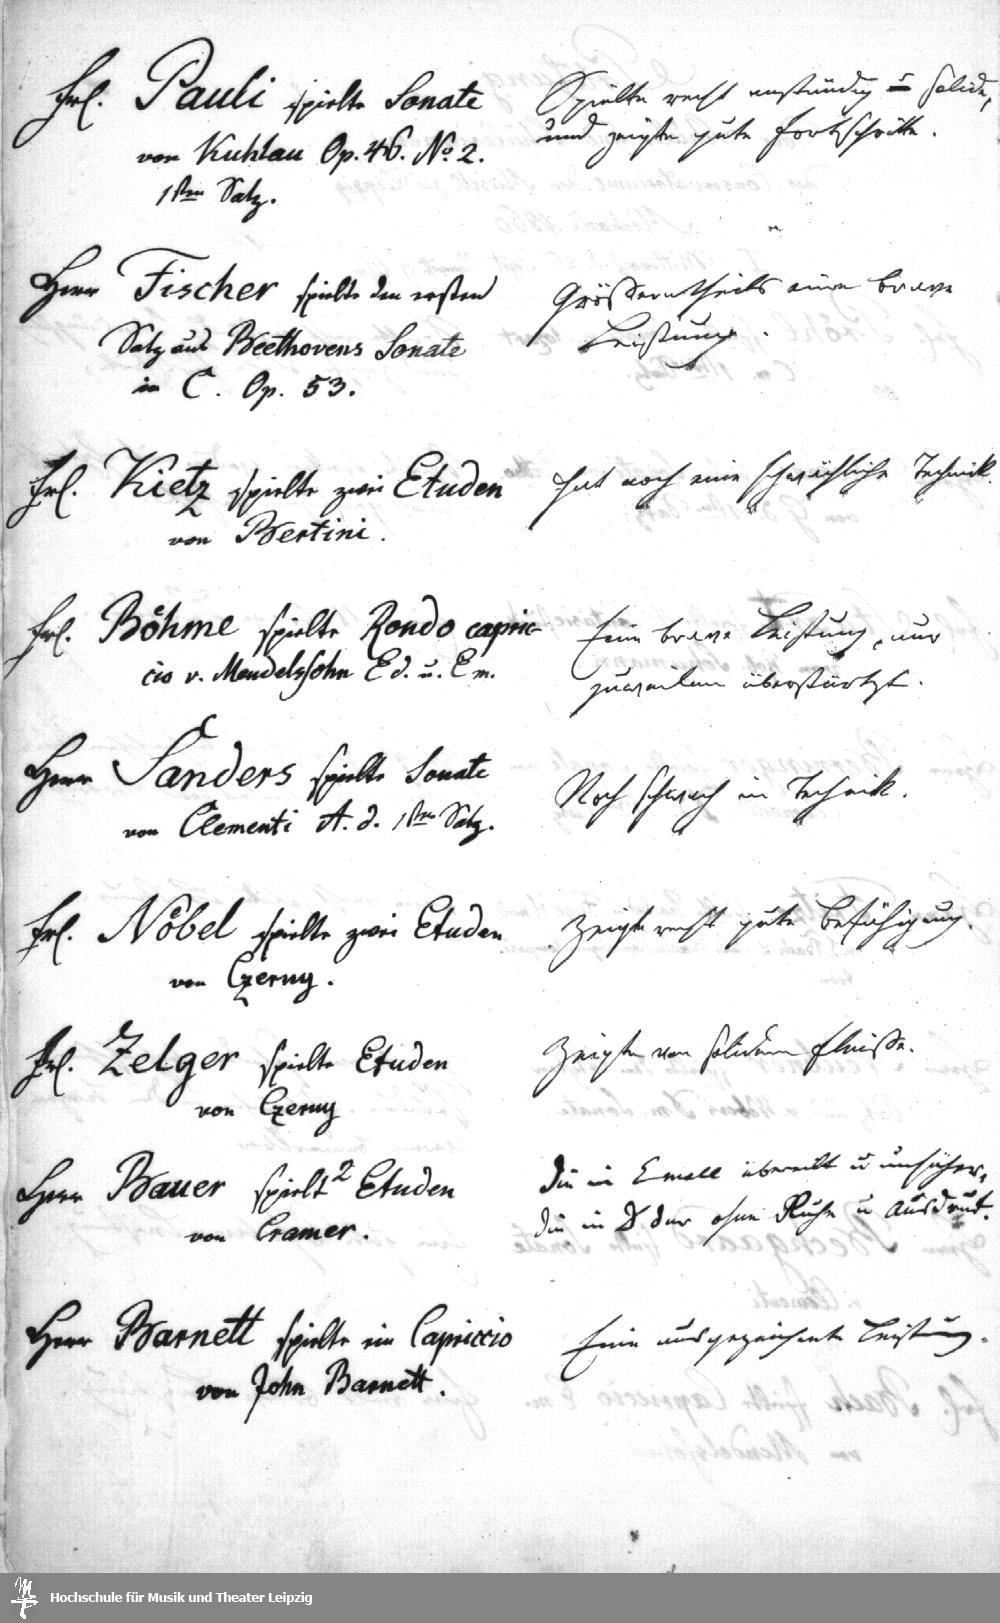 Frl. Pauli spielte Sonate
von Kuhlau Op. 46. No 2.
1sten Satz.
Spielte recht anständig u solide,
und zeigte gute Fortschritte.
Herr Fischer spielte den ersten
Satz aus Beethovens Sonate
in C. Op. 53.
Größerntheils eine brave
Leistung.
Frl. Kietz spielte zwei Etuden
von Bertini.
Hat noch eine schwächliche Technik.
Frl. Böhme spielte Rondo capric-
cio v. Mendelssohn E d. u. E m.
Eine brave Leistung, nur
zuweilen überstürtzt.
Herr Sanders spielte Sonate
von Clementi A. d. 1sten Satz.
Noch schwach in Technik.
Frl. Nöbel spielte zwei Etuden
von Czerny.
Zeigte recht gute Befähigung.
Frl. Zelger spielte Etuden
von Czerny
Zeigte von solidem Fleisse.
Herr Bauer spielt 2 Etuden
von Cramer.
Die in E moll übereilt u unsicher,
die in D dur ohne Ruhe u Ausdruck.
Herr Barnett spielte ein Capriccio
von John Barnett.
Eine ausgezeichnete Leistung.
Hochschule für Musik und Theater Leipzig